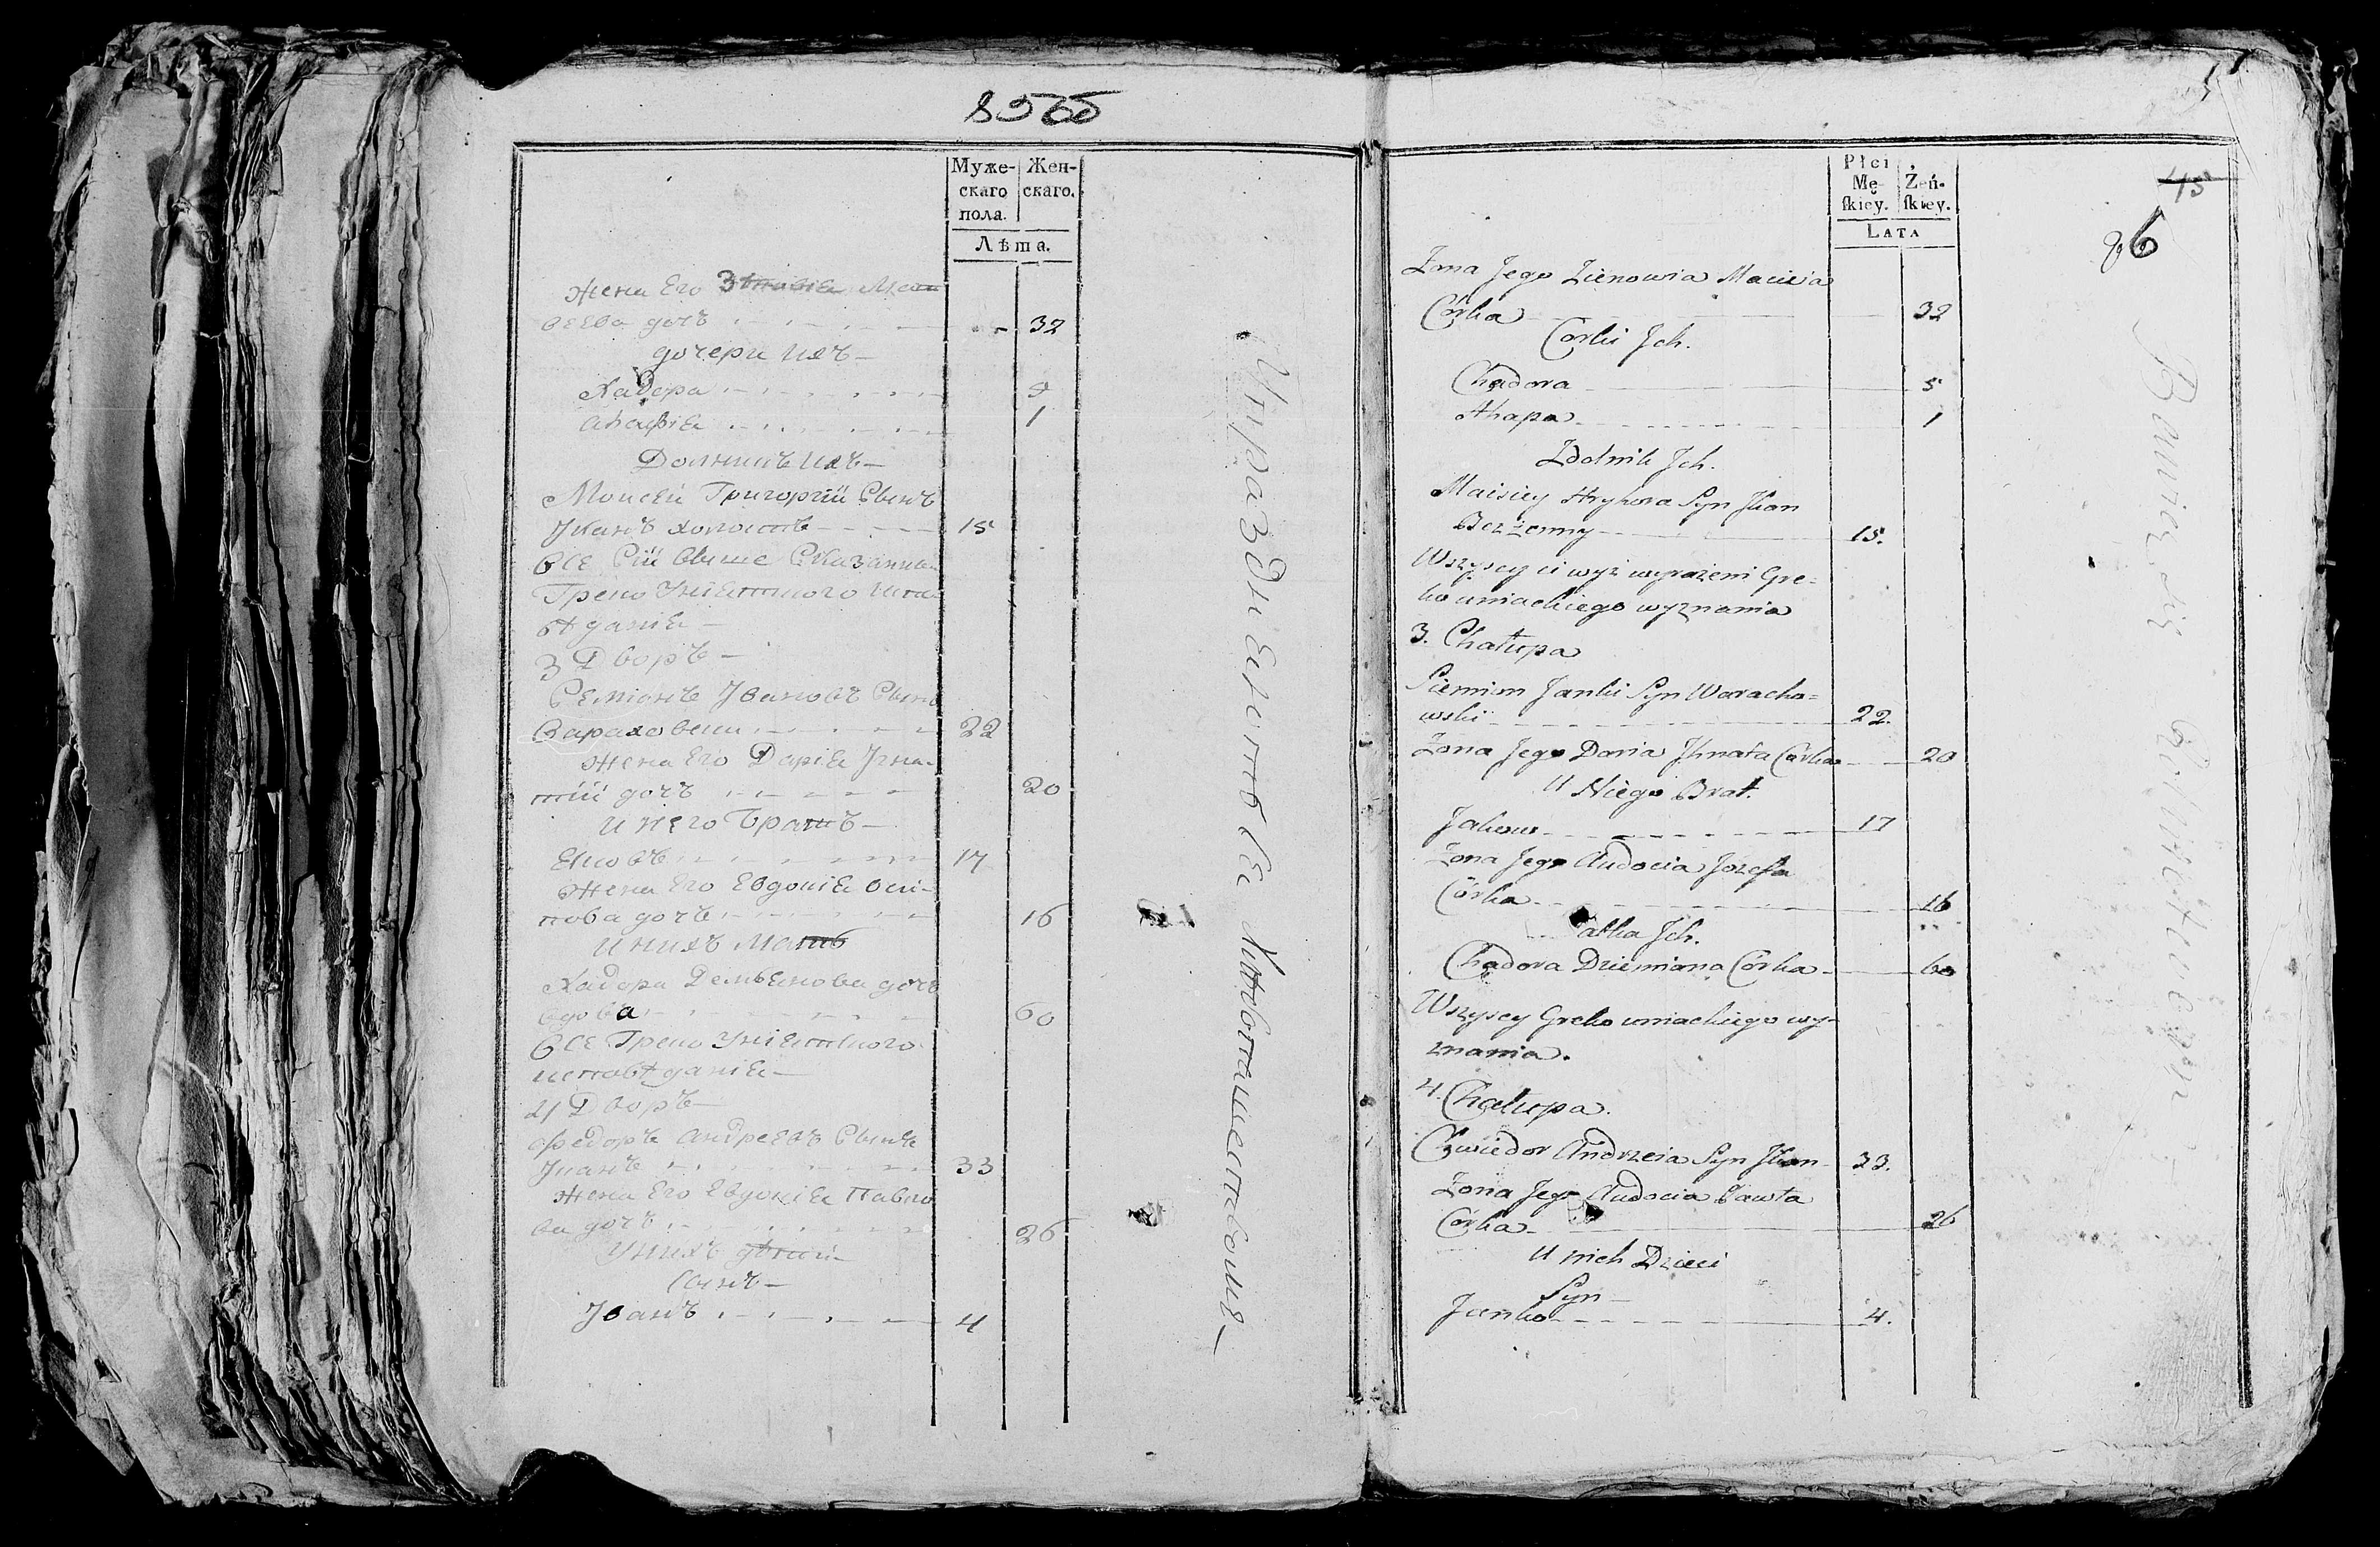 85об
Муже-
скаго
пола.
Жен-
скаго.
Лѣта.
Жена Его Зѣновія Мат
веева дочъ 32
дочери ихъ
Хадора 5
Агафія 1
Дольникъ ихъ
Моисей Григорій Сынъ
Жканъ холостъ 15
Все Сіи выше Сказанна
Греко Уніятского испо
вѣданія
3 Дворъ
Семіонъ Івановъ Сынъ
Вараховски 22
Жена Его Дарія Ігна
тій дочъ 20
И Него Братъ
Яковъ 17
Жена Его Евдокія Оси
пова дочъ 16
И нихъ Мать
Хадора Демьянова дочъ
вдова 60
Все Греко Уніятского
исповѣданія
4 Дворъ
Федоръ Андреевъ Сынъ
33
Жена Его Евдокія Павло
ва дочъ 26
У нихъ дѣти
Сынъ
Іванъ 4
Płci
Mę-
ſkiey.
Żeń-
ſkiey.
Lata
45
86
Żona Jego Zienowia Macieia
Córka 32
Corki Jch.
Chadora 5
Ahapa 1
Zdolnik Jch.
Maisiey Hryhora Syn Jkan
Bezżenny 15.
Wszyscy ci wyż wyrażeni Gre-
ko uniackiego wyznania
3. Chałupa
Siemion Janki Syn Waracho-
wski 22.
Żona Jego Daria Jhnata Córka 20
U Niego Brat.
Jakow 17
Żona Jego Audocia Jozefa
Córka 16
atka Jch.
Chadora Dziemiana Córka 60
Wszyscy Greko uniackiego wy-
znania.
4. Chałupa.
Chwiedor Andrzeia Syn Jkan 33.
Żona Jego Audocia Pawła
Córka 26
U nich Dzieci
Syn
Janko 4.